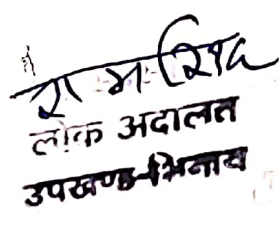 रामसिंह
लोक अदालत
उपखण्ड-भिनाय